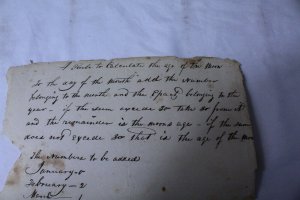 A Rule to Calculate the age of the Moon
To the day of the Month add the Number
belonging to the month and the Epact belonging to the
year - if the sum excede 30 take 30 from it
and the remainder is the moons age - if the sum
does not excede 30 that is the age of the moon
The Numbers to be added
January - 0
February - 2
March 1